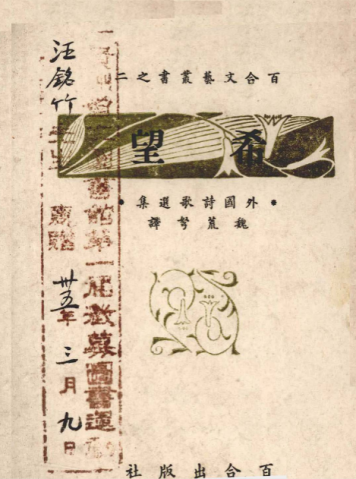 百合文藝叢書之二
希望
●外國詩歌選集●
魏荒弩譯
百合出版社
書館第一屆徵募圖書運動
汪銘竹
卅五年三月九日